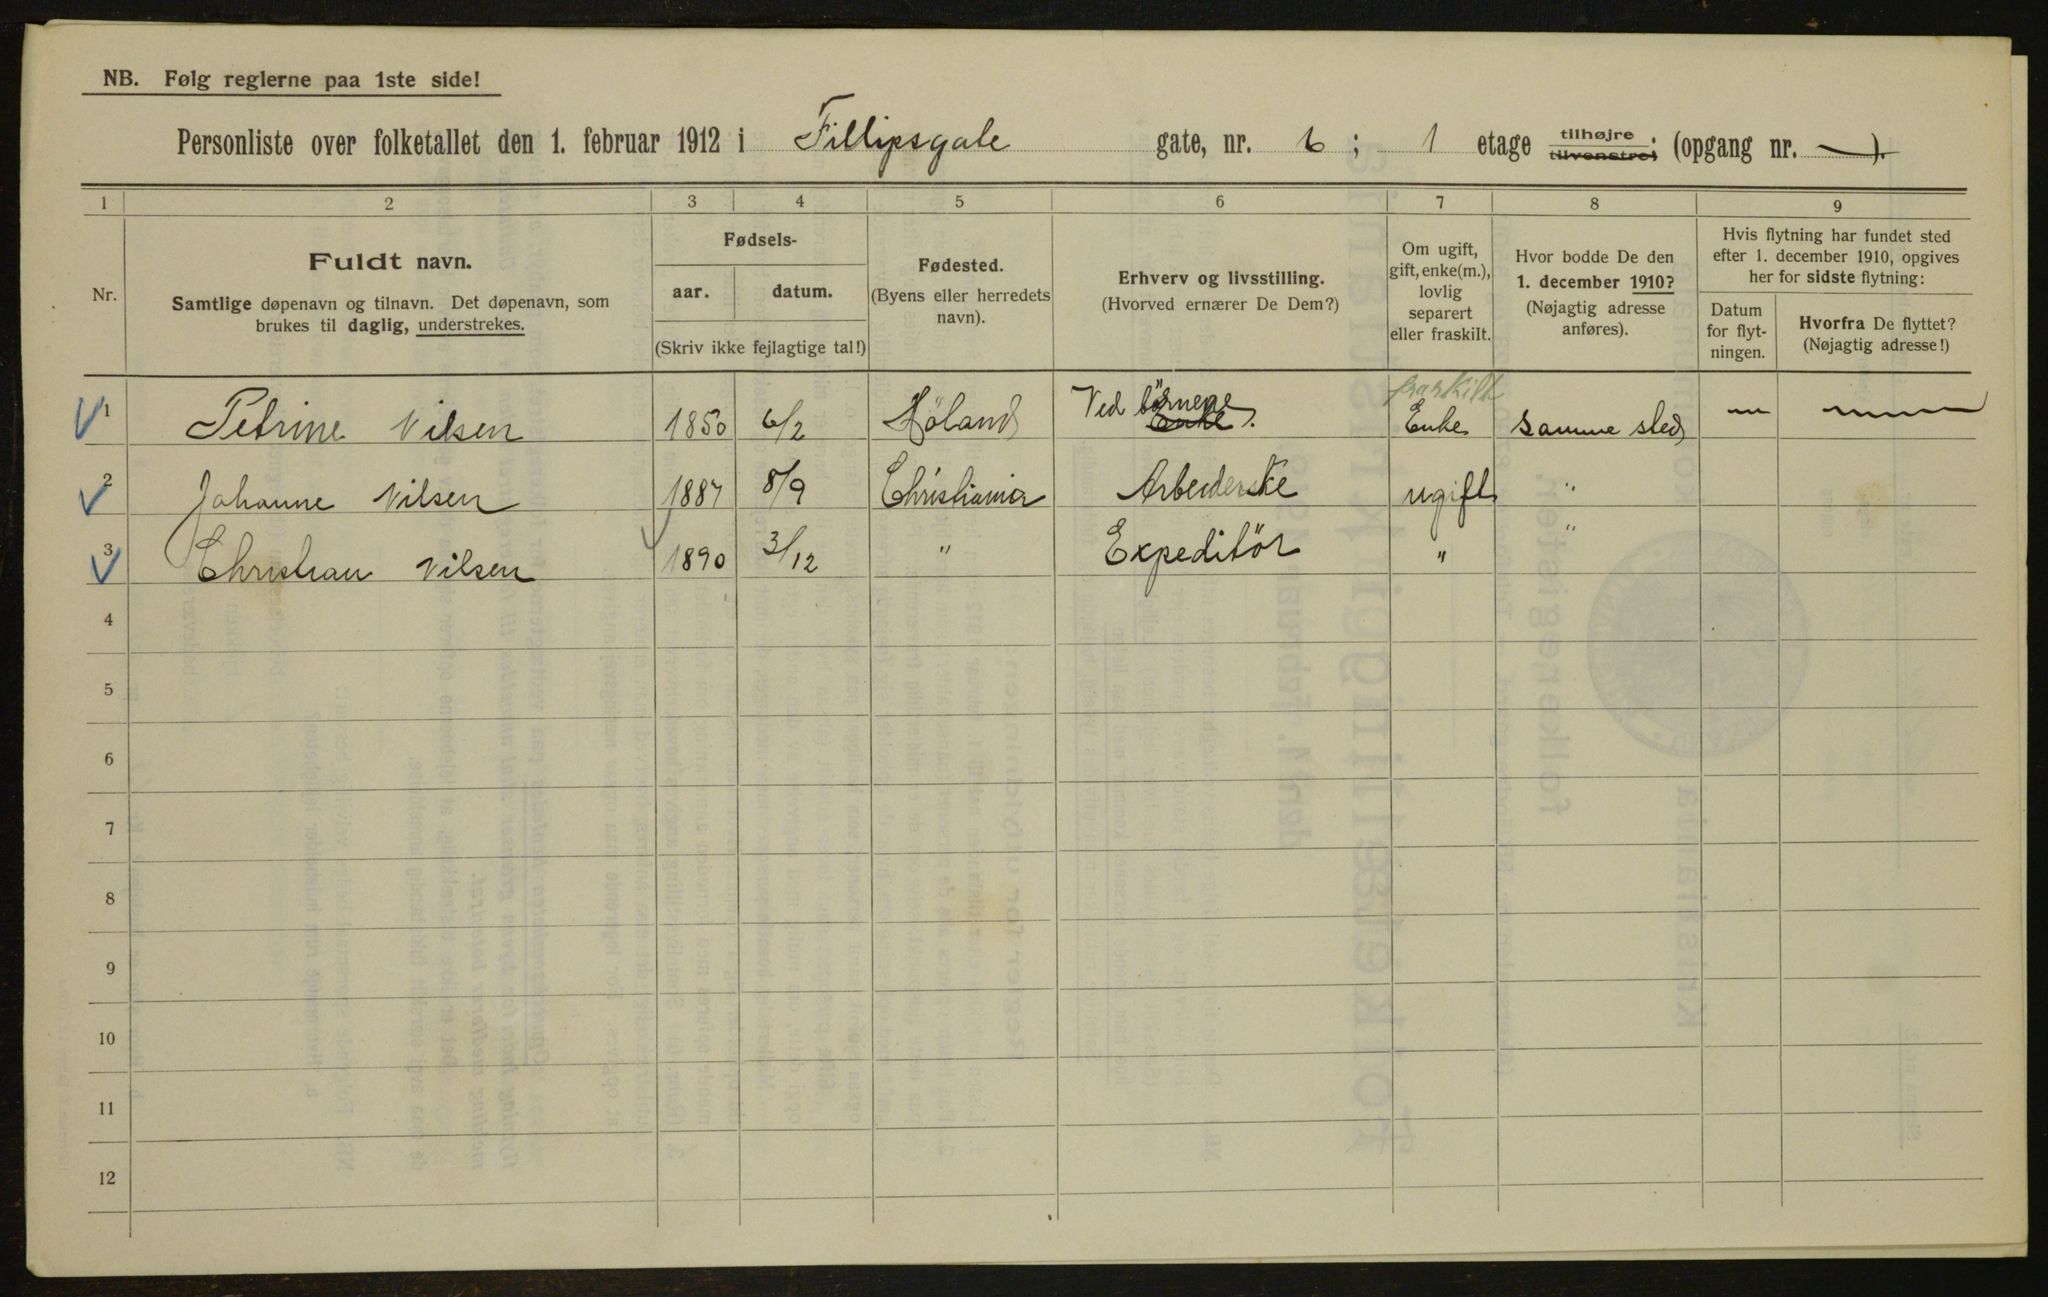 NB. Følg reglerne paa 1ste side!
Personliste over folketallet den 1. februar 1912 i Fillipsgate gate, nr. 6; 1 etage tilhøjre tilvenstre; (opgang nr. —).
1 2 3 4 5 6 7 8 9
Nr.
Fuldt navn.
Samtlige døpenavn og tilnavn. Det døpenavn, som
brukes til daglig, understrekes.
Fødsels-
aar. datum.
(Skriv ikke fejlagtige tal!)
Fødested.
(Byens eller herredets
navn).
Erhverv og livsstilling.
(Hvorved ernærer De Dem?)
Om ugift,
gift, enke(m.),
lovlig
separert
eller fraskilt.
Hvor bodde De den
1. december 1910?
(Nøjagtig adresse
anføres).
Hvis flytning har fundet sted
efter 1. december 1910, opgives
her for sidste flytning:
Datum
for flyt-
ningen.
Hvorfra De flyttet?
(Nøjagtig adresse!)
fraskilt
1 Petrine Nilsen 1850 6/2 Høland Ved börnene Enke. Enke Samme sted
2 Johanne Nilsen 1887 8/9 Christiania Arbeiderske ugift "
3 Christian Nilsen 1890 3/12 " Expeditör " "
4
5
6
7
8
9
10
11
12